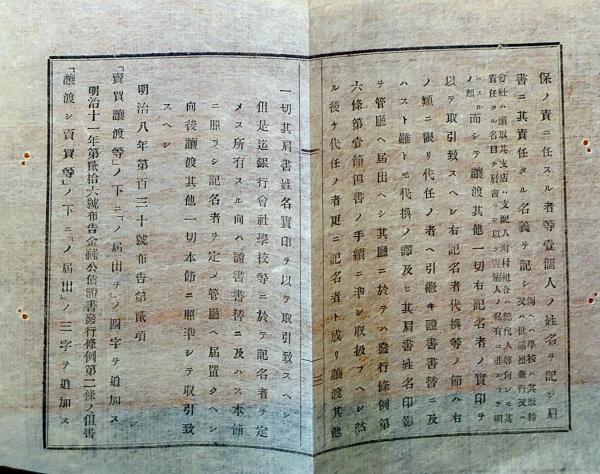 保ノ責ニ任スル者等壹個人ノ姓名ヲ記シ肩
書ニ其責任タル名義ヲ記シ
ノ類而シテ讓渡其他一切右記名者ノ實印ヲ
以テ取引致スヘシ右記名者代換等ノ節ハ右
ノ類ニ限リ代任ノ者ヘ引繼キ證書書替ニ及
ハスト雖トモ代換ノ譯及ヒ其肩書姓名印影
ヲ管廳ヘ屆出ヘシ其廳ニ於テハ發行條例第
六條第壹節但書ノ手續ニ準シ取扱フヘシ然
ル後ケ代任ノ者更ニ記名者ト成リ讓渡其他
一切其肩書姓名實印ヲ以テ取引致スヘシ
但是迄銀行會社學校等ニ於テ記名者ヲ定
メス所有スル向ハ證書書替ニ及ハス本節
ニ照ラシ記名者ヲ定メ管廳ヘ屆置クヘシ
向後讓渡其他一切本節ニ照準シテ取引致
スヘシ
明治八年第百三十號布告第貳項
「賣買讓渡等」ノ下ニ「ノ屆出ヲ」ノ四字ヲ追加ス
明治十一年第貳拾六號布告金祿公債證書發行條例第二條ノ但書
「讓渡シ賣買等」ノ下ニ「ノ屆出」ノ三字ヲ追加ス